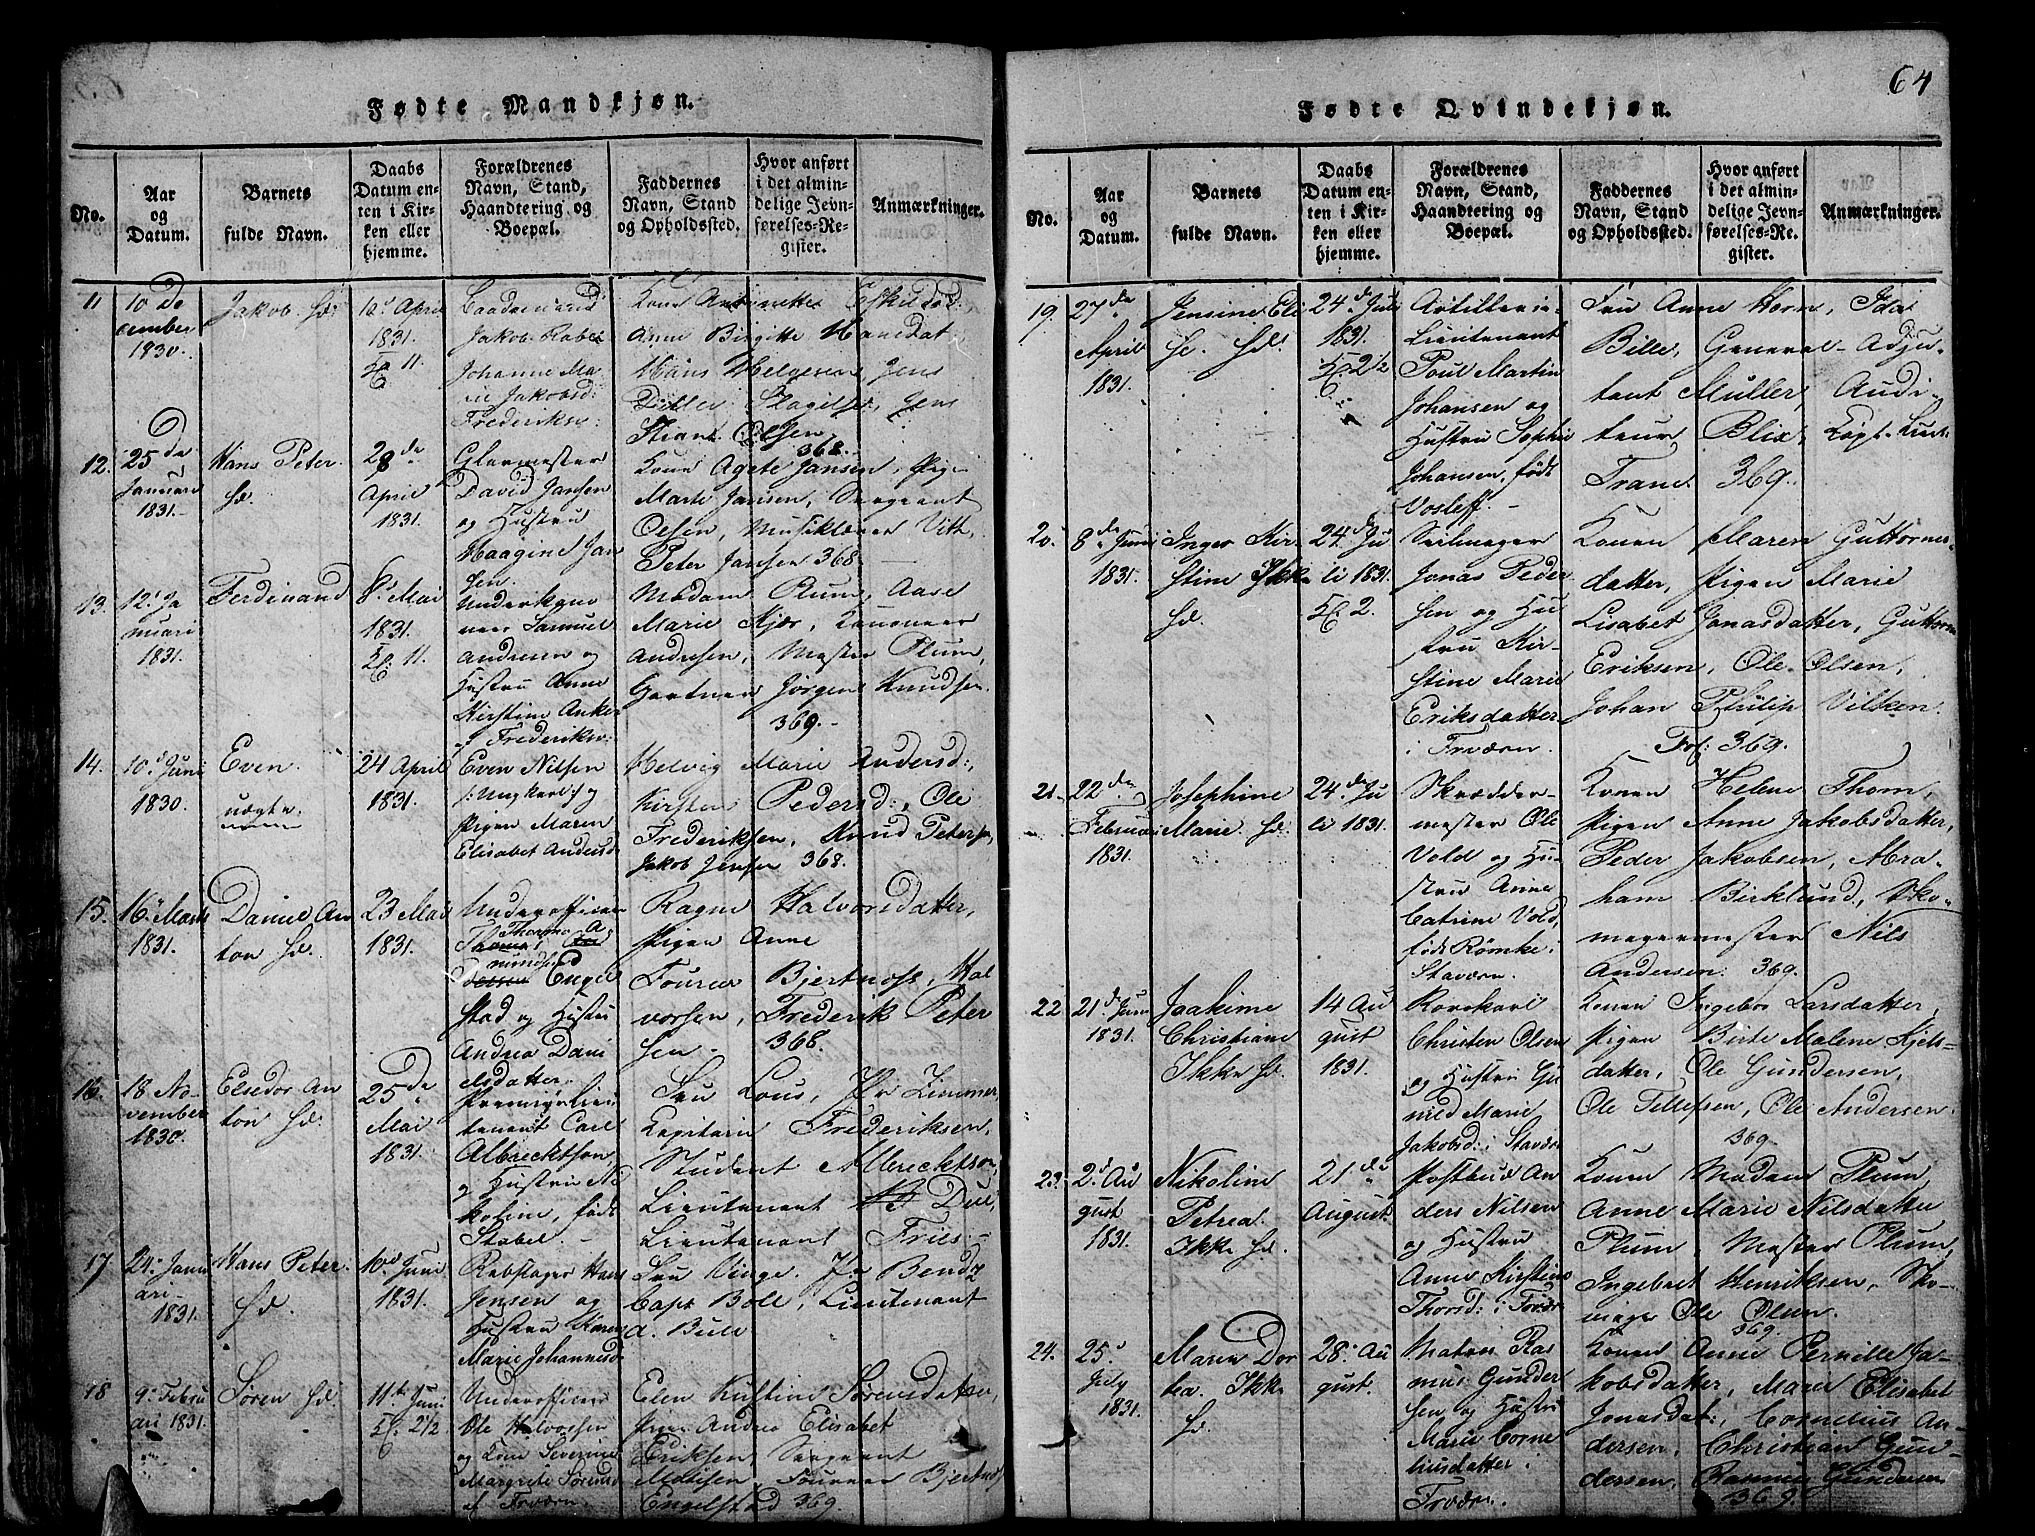 64
Fødte Mandkjøn.
No.
Aar
og
Datum.
Barnets
fulde Navn.
Daabs
Datum en-
ten i Kir-
ken eller
hjemme.
Forældrenes
Navn, Stand,
Haandtering og
Boepæl.
Faddernes
Navn, Stand
og Opholdssted.
Hvor anført
i det almin-
delige Jevn-
førelses-Re-
gister.
Anmærkninger.
11
10 De
cember
1830.
Jakob. hd.
10' April
1831.
11.
Jakob
Johanne Ma
rie Jakobsd:
Frederiksv:
Kone Antonette Eskildsd:
Anne Birgitte Hansdat
Hans Helgesen, Jens
Ditlev Slagelse, Jens
Olsen
368.
12.
25 de
Januari
1831.
Hans Peter.
hd.
28 de
April
1831.
Glarmester
David Jansen
og Hustru
Jan
sen.
Kone Agete Jansen, Pige
Marte Jansen, Sergeant
Olsen, Musiklærer Vith,
Peter Jansen 368
13.
12' Ja
nuari
1831.
Ferdinand
8' Mai
1831.
11.
Samuel
Andresen og
Hustru Anne
Kirstine Anker
af Frederiksv:
Madam Plum, Aase
Marie Kjær, Kanoneer
Andresen, Mester Plum,
Gartner Jørgen Knudsen.
369.
14.
10 d Juni
1830.
Even.
uægte.
24 April
1831.
Even Nilsen
/: Ungkarl :/ og
Pigen Maren
Elisabet Andersd
Helvig Marie Andersd:,
Kirsten Pedersd:, Ole
Frederiksen, Knud Petersen,
Jakob Jensen 368.
15.
16 d Marts
1831.
Daniel An
ton hd.
23 Mai
1831.
Underofficeer
Thommes A
mundsen
Engel
stad og Hustru
Andrea Dani
elsdatter.
Ragne Halvorsdatter,
Pigen Anne
Fourer Bjertnæss, Hal
vorsen, Frederik Peter
sen 368.
16.
18 No-
vember
1830.
Elsedor An
ton hd.
25 de
Mai
1831.
Premierlieu
tenant Carl
Albrecktson
og Hustru Ni
koline, født
Stabel.
Fru Lous, Hr Zimmer,
Kapitain Frederiksen,
Student Albrecktson,
Lieutenant Due,
Lieutenant Fries.
17
24 Janu
ari
1831.
Hans Peter.
hd.
10 d Juni
1831.
Rebslager Hans
Jensen og
Hustru Karen
Marie Johannesd
Fru Vinge. Hr Bendz
Capt. Boll, Lieutenant
d. Bull
18
9 Febru
ari 1831.
Søren hd.
11 te Juni
2 1/2
Underofficeer
Ole Halvorsen
og Kone Severine
Margrete Sørensd
af Fredværn.
Elen Kirstine Sørensdatter,
Andrea Elisabet
Eriksen, Sergeant
Madsen, Foureer Bjertnæs
Engelstad 369.
Fødte Qvindekjøn.
No.
Aar
og
Datum.
Barnets
fulde Navn.
Daabs
Datum en-
ten i Kir-
ken eller
hjemme.
Forældrenes
Navn, Stand,
Haandtering og
Boepæl.
Faddernes
Navn, Stand
og Opholdssted.
Hvor anført
i det almin-
delige Jevn-
førelses-Re-
gister.
Anmærkninger.
19.
27 de
April
1831.
Jensine Eli
se. hd.
24 de Juli
1831.
2 1/2
Artillerie-
Lieutenant
Poul Martin
Johansen og
Hustru Sophie
Johansen, født
Vosleff.
Fru Anne Horn, Ida
Bille, General-Adju-
tant Müller, Audi-
teur Blix, Kapt.
Frane. 369.
20.
8 de Juni
1831.
Inger Kir-
stine Ikke
hd.
24 de Ju
li 1831
2.
Seilmager
Jonas Peder
sen og Hu
stru Kir-
stine Marie
Eriksdatter
i Frværn.
Konen Maren Guttorms-
datter, Pigen Marie
Lisabet Jonasdatter, Guttorm
Eriksen, Ole Olsen,
Johan Philip Vilken.
Fol: 369.
21.
22 de
Februari
1831.
Josephine
Marie. hd.
24 de Ju
li 1831.
Skrædder-
mester Ole
Vold og Hu
stru Anne
Catrine Vold,
født Rømke i
Staværn.
Konen Helene Thom,
Pigen Anne Jakobsdatter,
Peder Jakobsen, Abra-
ham Birklund, Sko-
magermester Nils
Andersen. 369.
22.
21 d Juni
1831.
Joakime
Christiane
Ikke hd.
14 Au
gust
1831.
Rorskarl
Christen Olsen
og Hustru Gu
nild Marie
Jakobsd: i Staværn
Konen Ingebor Larsdatter,
Pigen Birte Malene Kjels-
datter, Ole Gundersen,
Ole Tellefsen, Ole Andersen.
369.
23.
2 d Au
gust
1831.
Nikoline
Petrea.
Ikke hd.
21 de
August.
Postbud An
ders Nilsen
og Hustru
Anne Kirstine
Thorsd: i Frvær
Konen Madam Plum,
Anne Marie Nilsdatter
Plum, Mester Plum,
Ingebret Henriksen, Sko-
mager Ole Olsen.
369.
24.
25 d
July
1831.
Maren Dor
tea. Ikke
hd.
28 Au
gust.
Matros Ras
mus Gunder
sen og Hustru
Marie Corne
liusdatter.
Frværn.
Konen Anne Pernille Ja-
kobsdatter, Maren Elisabet
Jonasdat:, Cornelius An-
dersen, Christian Gun-
dersen, Rasmus Gundersen
369.